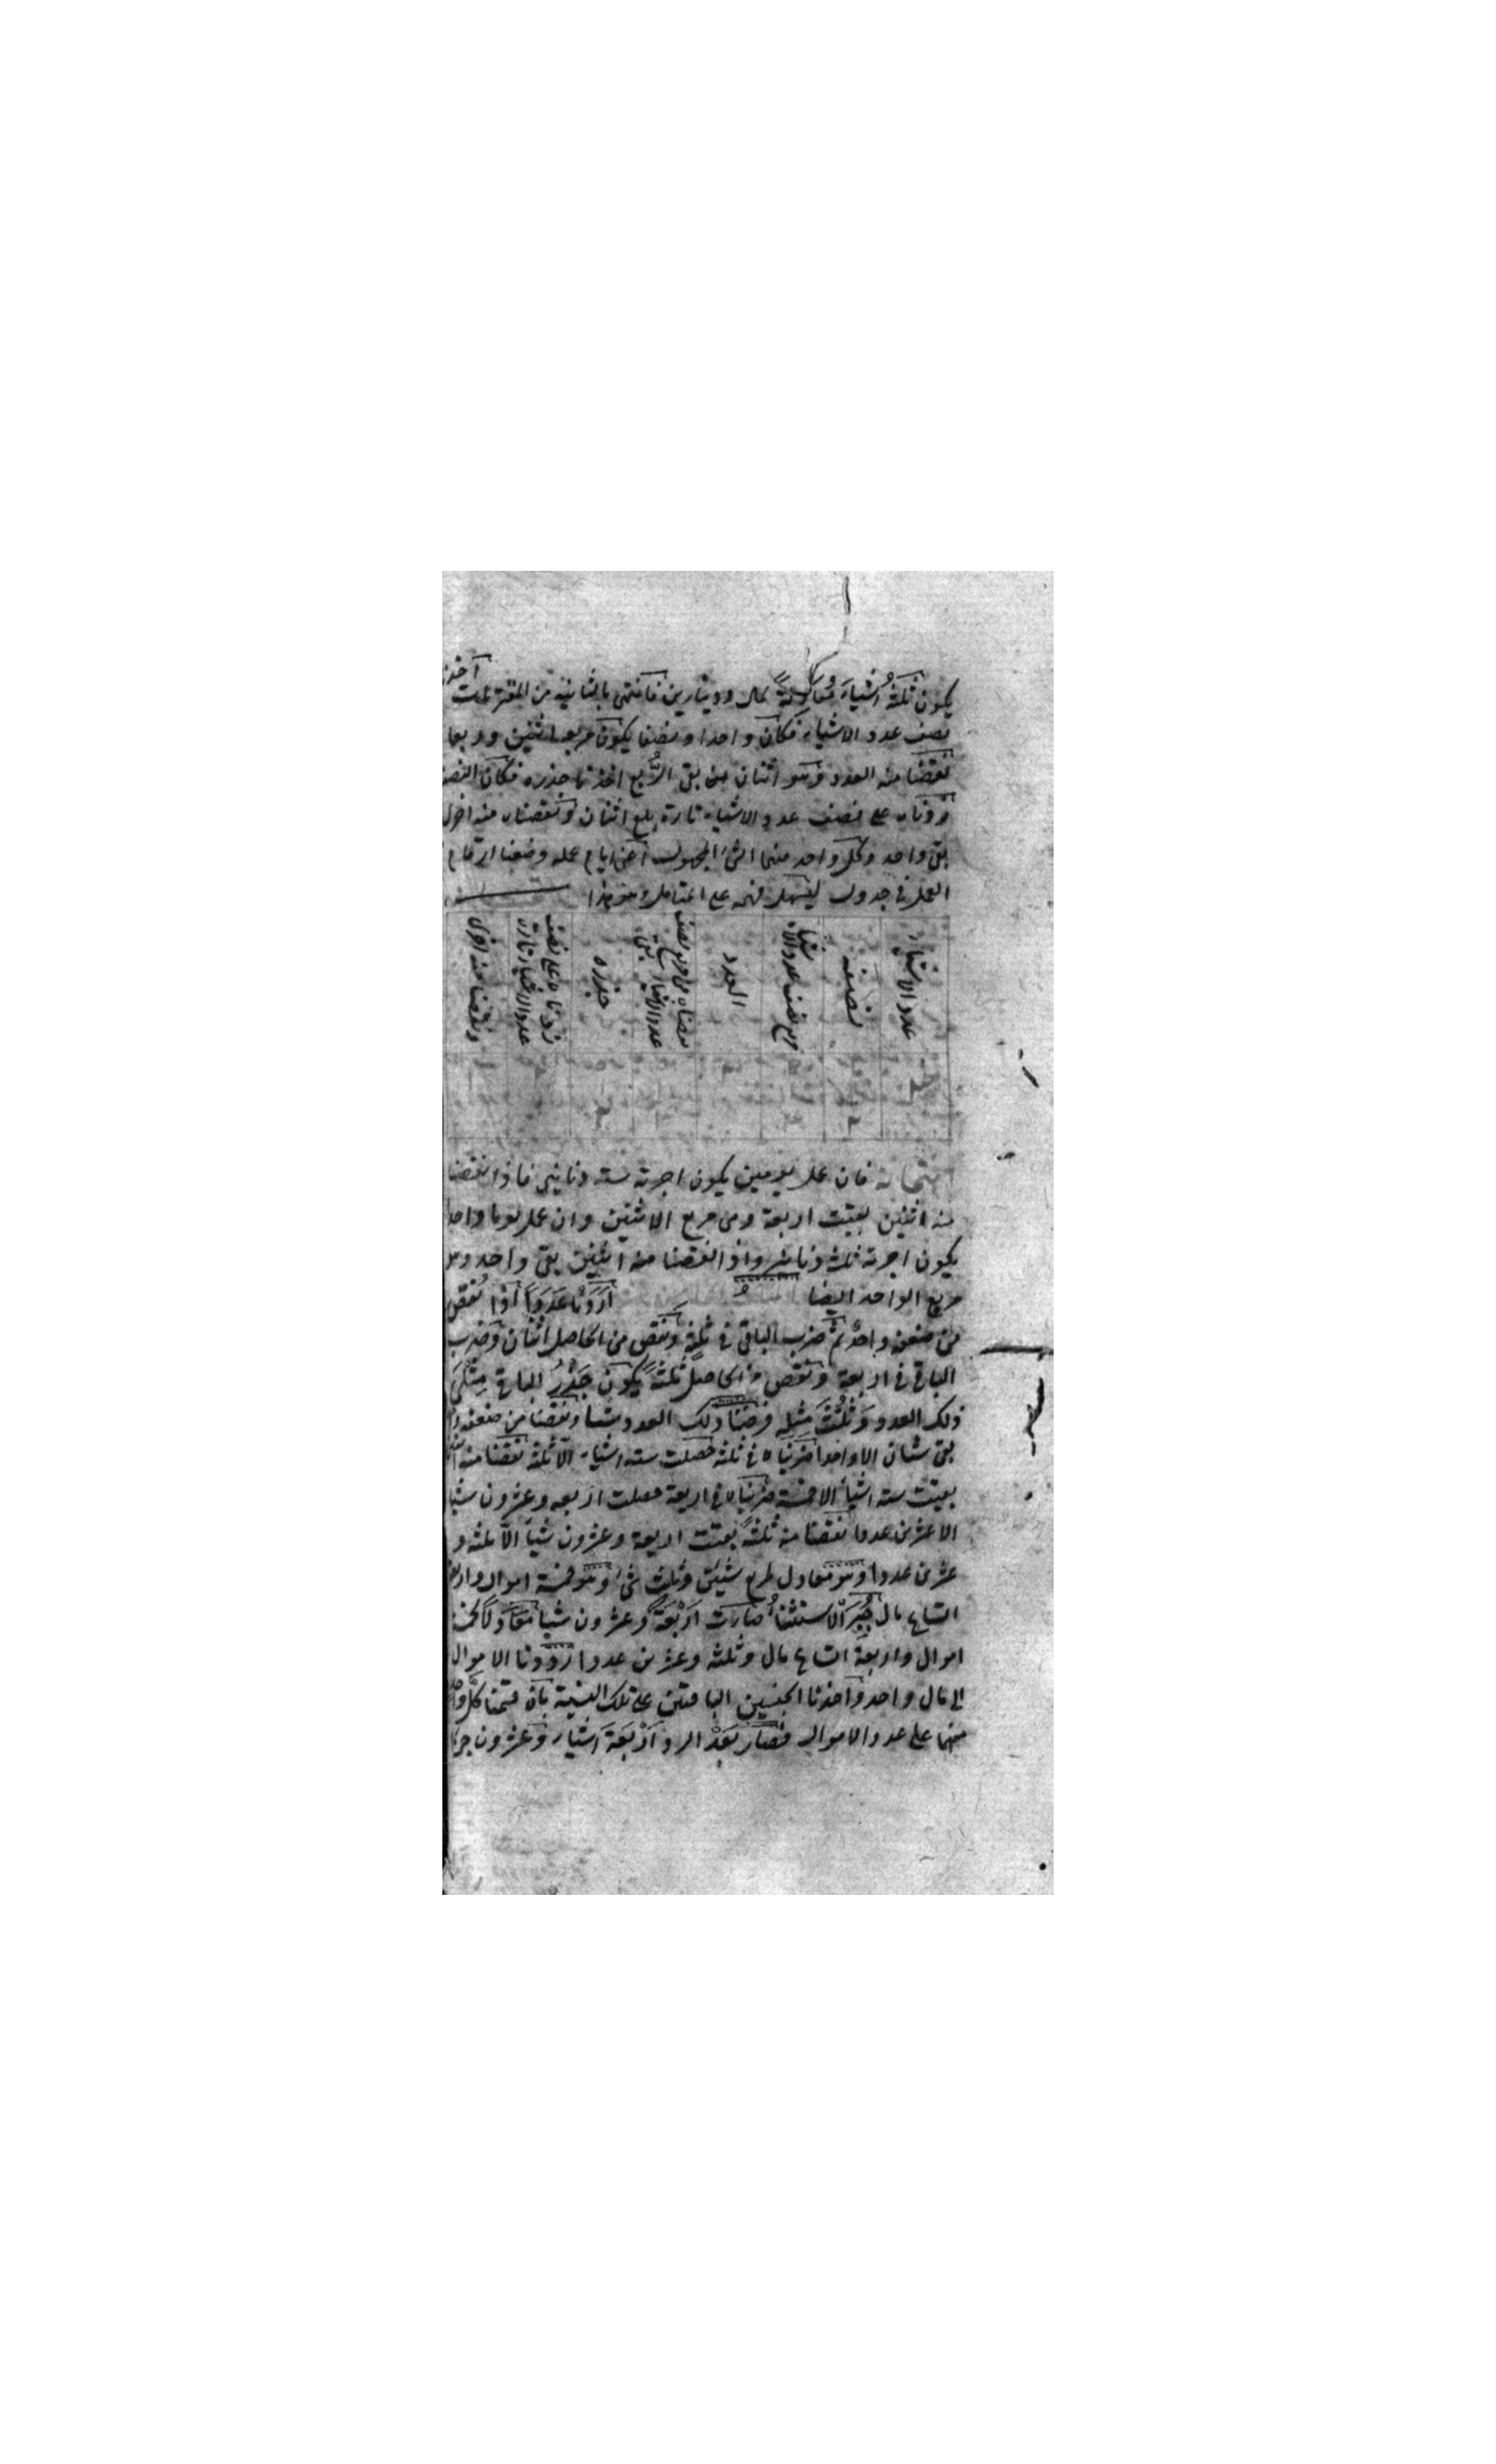 آخذنا
يكون ثلثة أشياء معادلة لمال ودينارين فانتهى بالثانية من المقترنات
نصف عدد الاشياء فكان واحدا ونصفا يكون مربعه اثنين وربعا
نقصنا منه العدد وهو اثنان بقى الرُّبع اخذنا جذره فكان النصف
زدناه على نصف عدد الاشياء تارة بلغ اثنان ونقصناه منه اخرى
بقى واحد وكل واحد منهما الشئ المجهول اعنى ايام عمله وضعنا ارقام
العمل فى جدول ليسهل فهمه على المتأمل وهو هذا
عدد الاشياء
نصفه
مربع نصف عدد الاشياء
العدد
نقصناه من مربع نصف عدد الاشياء بقى
جذره
زدناه على نصف عدد الاشياء تارة
ونقصنا منه اخرى
امتحانه فان عمل يومين يكون اجرته سته دنانير فاذا نقصنا
منه اثنين بقيت اربعة وهى مربع الاثنين وان عمل يوما واحدا
يكون اجرته ثلثة دنانير واذا نقصنا منه اثنين بقى واحد وهو
مربع الواحد ايضا أَرَدْنا عَدَداً اذا نُقص
من ضعفه واحدٌ ثم ضرب الباقى فى ثلثةٍ ونقص من الحاصل اثنان وضرب
الباقى فى اربعة ونقص من الحاصل ثلثةً يكون جَذْرُ الباقى مِثْلَى
ذلك العدد وَثُلُثَ مِثلِه فرضنا ذلك العدد شيئا ونقصنا من ضعفه واحدا
بقى شئان الا واحدا ضربناه فى ثلثه حصلت سته اشياء الّا ثلثة نقصنا منه اثنين
بقيت سته اشياء الا خمسة ضربناه فى اربعة حصلت اربعه وعشرون شيئا
الا عشرين عددا نقصنا منه ثلثةً بقيت اربعة وعشرون شيئا الّا ثلثه و
عشرين عددا وهو معادل لمربع شيئين وثلث شئ وهو خمسة اموال واربعة
اتساع مال جُبِرَ الاستثناءُ صارت اَرْبَعَة وعشرون شيئا معادلاً لخمسة
اموال واربعة اتساع مال وثلثه وعشرين عددا رددنا الاموال
الى مال واحد وأخذنا الجنسين الباقيين على تلك النسبة بأن قسمنا كلَّ واحد
منهما على عدد الاموال فصار بَعْدَ الرد اَرْبَعَة اَشياء وعشرون جزءا